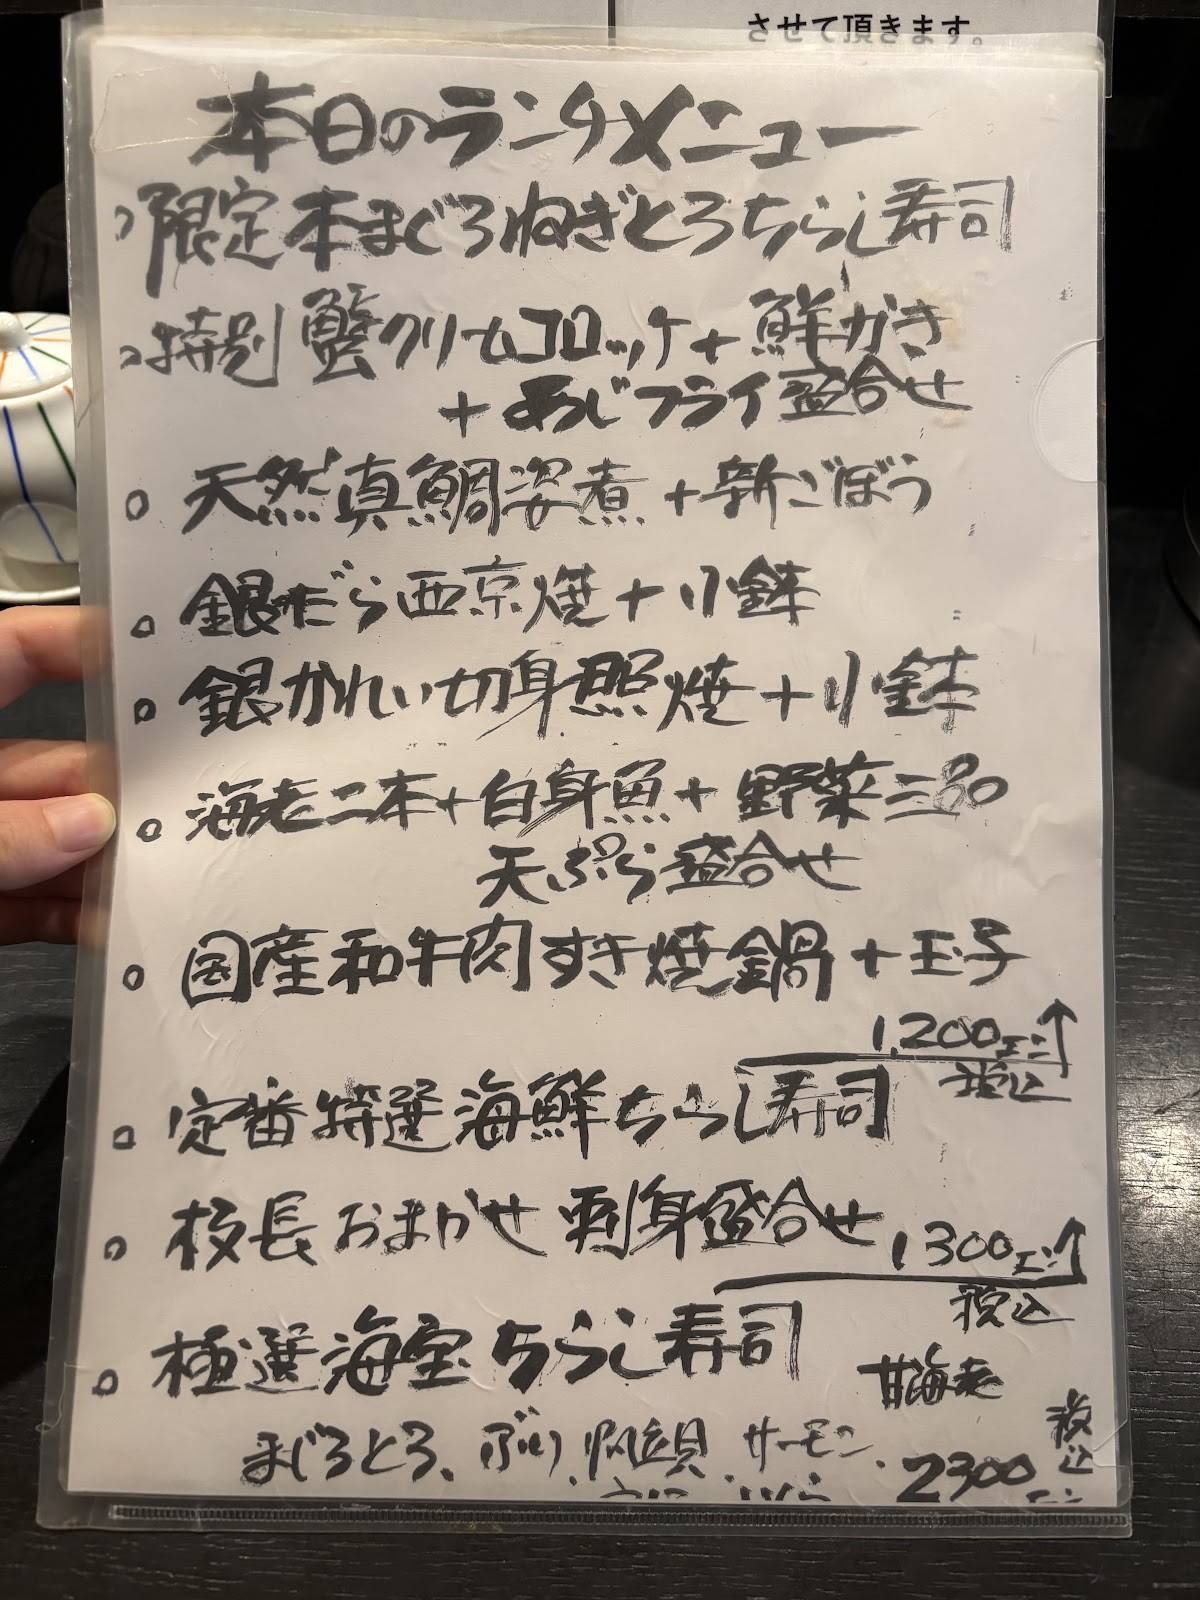 させて頂きます。
本日のランチメニュー
限定本まぐろねぎとろちらし寿司
特別 蟹クリームコロッケ+鮮かき
+あじフライ盛合せ
天然真鯛姿煮+新ごぼう
銀だら西京焼+小鉢
銀かれい切身照焼+小鉢
海老二本+白身魚+野菜三品
天ぷら盛合せ
国産和牛肉すき焼鍋+玉子
1,200エン
税込
定番特選海鮮ちらし寿司
板長おまかせ 刺身盛合せ
1300エン
税込
極選海宝ちらし寿司
甘海老
まぐろとろ、ぶり、帆立貝、サーモン、
2300エン
税込